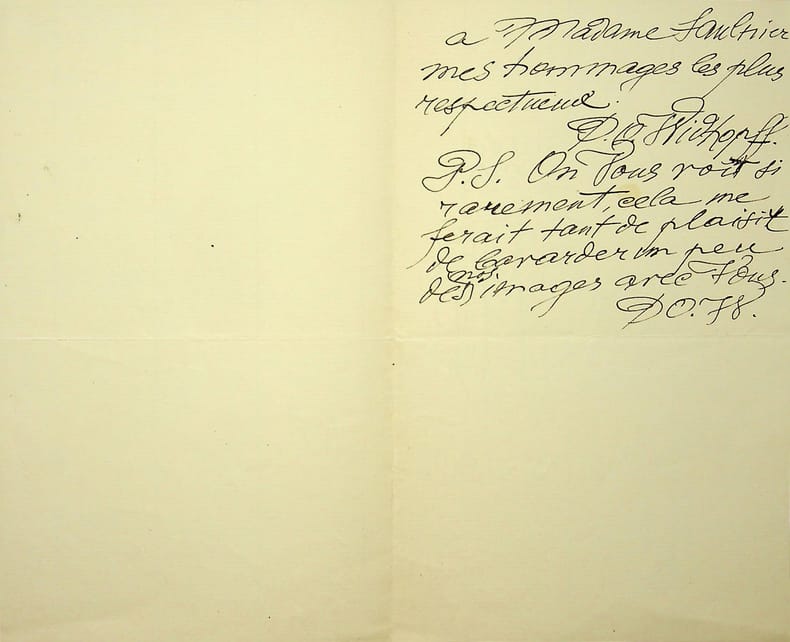 a Madame Saulnier
mes hommages les plus
respectueux.
D. O. Widhopff.
P.S. On Vous voit si
rarement, cela me
ferait tant de plaisir
de bavarder un peu
nos
des images avec Vous.
D O. W.